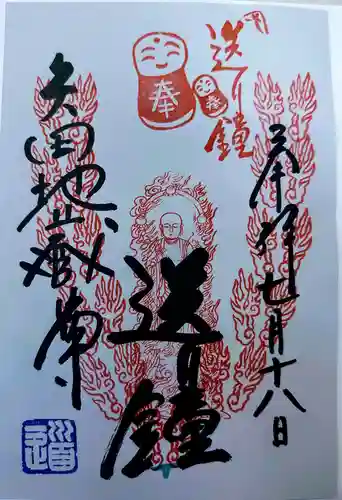 奉拝 廿七月十八日
送り鐘
奉
奉
送り鐘
矢田地蔵尊